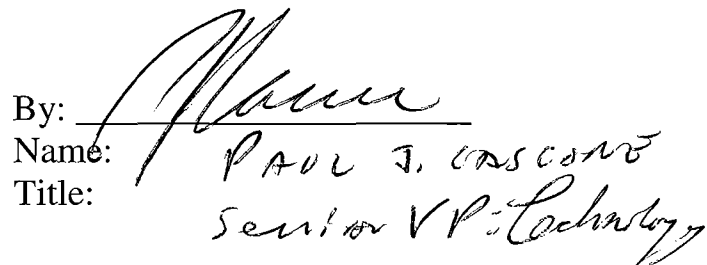 By:
Name: PAUL J. CASCONE
Title: Senior VP: Technology